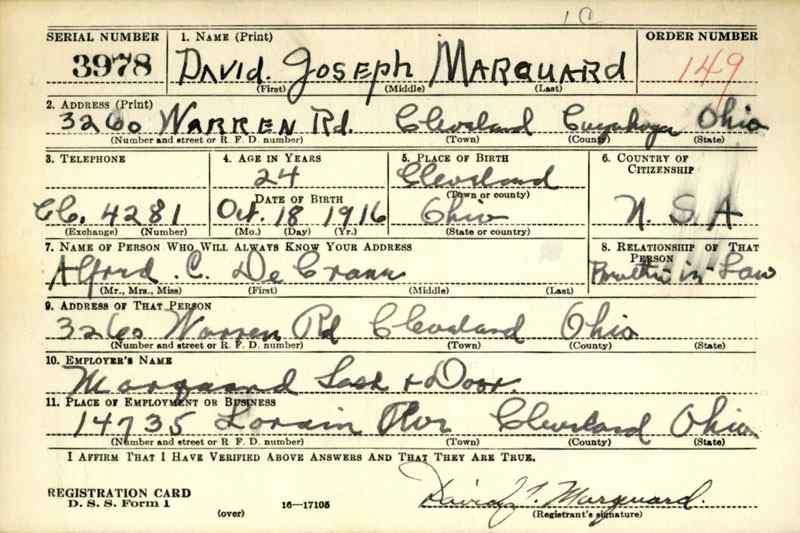 1C
SERIAL NUMBER 1. NAME (Print) ORDER NUMBER
3978 DAVID. JOSEPH MARQUARD 149
(First) (Middle) (Last)
2. ADDRESS (Print)
3260 WARREN Rd. Cleveland Cuyahoga Ohio
(Number and street or R. F. D. number) (Town) (County) (State)
3. TELEPHONE 4. AGE IN YEARS 5. PLACE OF BIRTH 6. COUNTRY OF CITIZENSHIP
24 Cleveland
DATE OF BIRTH (Town or county)
4281 Oct. 18 1916 Ohio U. S. A
(Exchange) (Number) (Mo.) (Day) (Yr.) (State or country)
7. NAME OF PERSON WHO WILL ALWAYS KNOW YOUR ADDRESS 8. RELATIONSHIP OF THAT PERSON
Alfred . C. De Crane Brother in Law
(Mr., Mrs., Miss) (First) (Middle) (Last)
9. ADDRESS OF THAT PERSON
3260 Warren Rd Cleveland Ohio
(Number and street or R. F. D. number) (Town) (County) (State)
10. EMPLOYER'S NAME
Marquard Sash + Door.
11. PLACE OF EMPLOYMENT OR BUSINESS
14735 Lorain Cleveland Ohio
(Number and street or R. F. D. number) (Town) (County) (State)
I AFFIRM THAT I HAVE VERIFIED ABOVE ANSWERS AND THAT THEY ARE TRUE.
REGISTRATION CARD
D. S. S. Form 1 16—17105 David J. Marquard.
(over) (Registrant's signature)